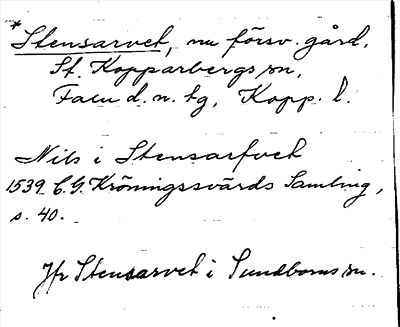 *
Stensarvet, nu försv. gård,
St. Kopparbergs sn,
Falu d. n. tg, Kopp. l.
Nils i Stensarfvet
1539 C. G. Kröningssvärds Samling,
s. 40.
Jfr Stensarvet i Sundborns sn.